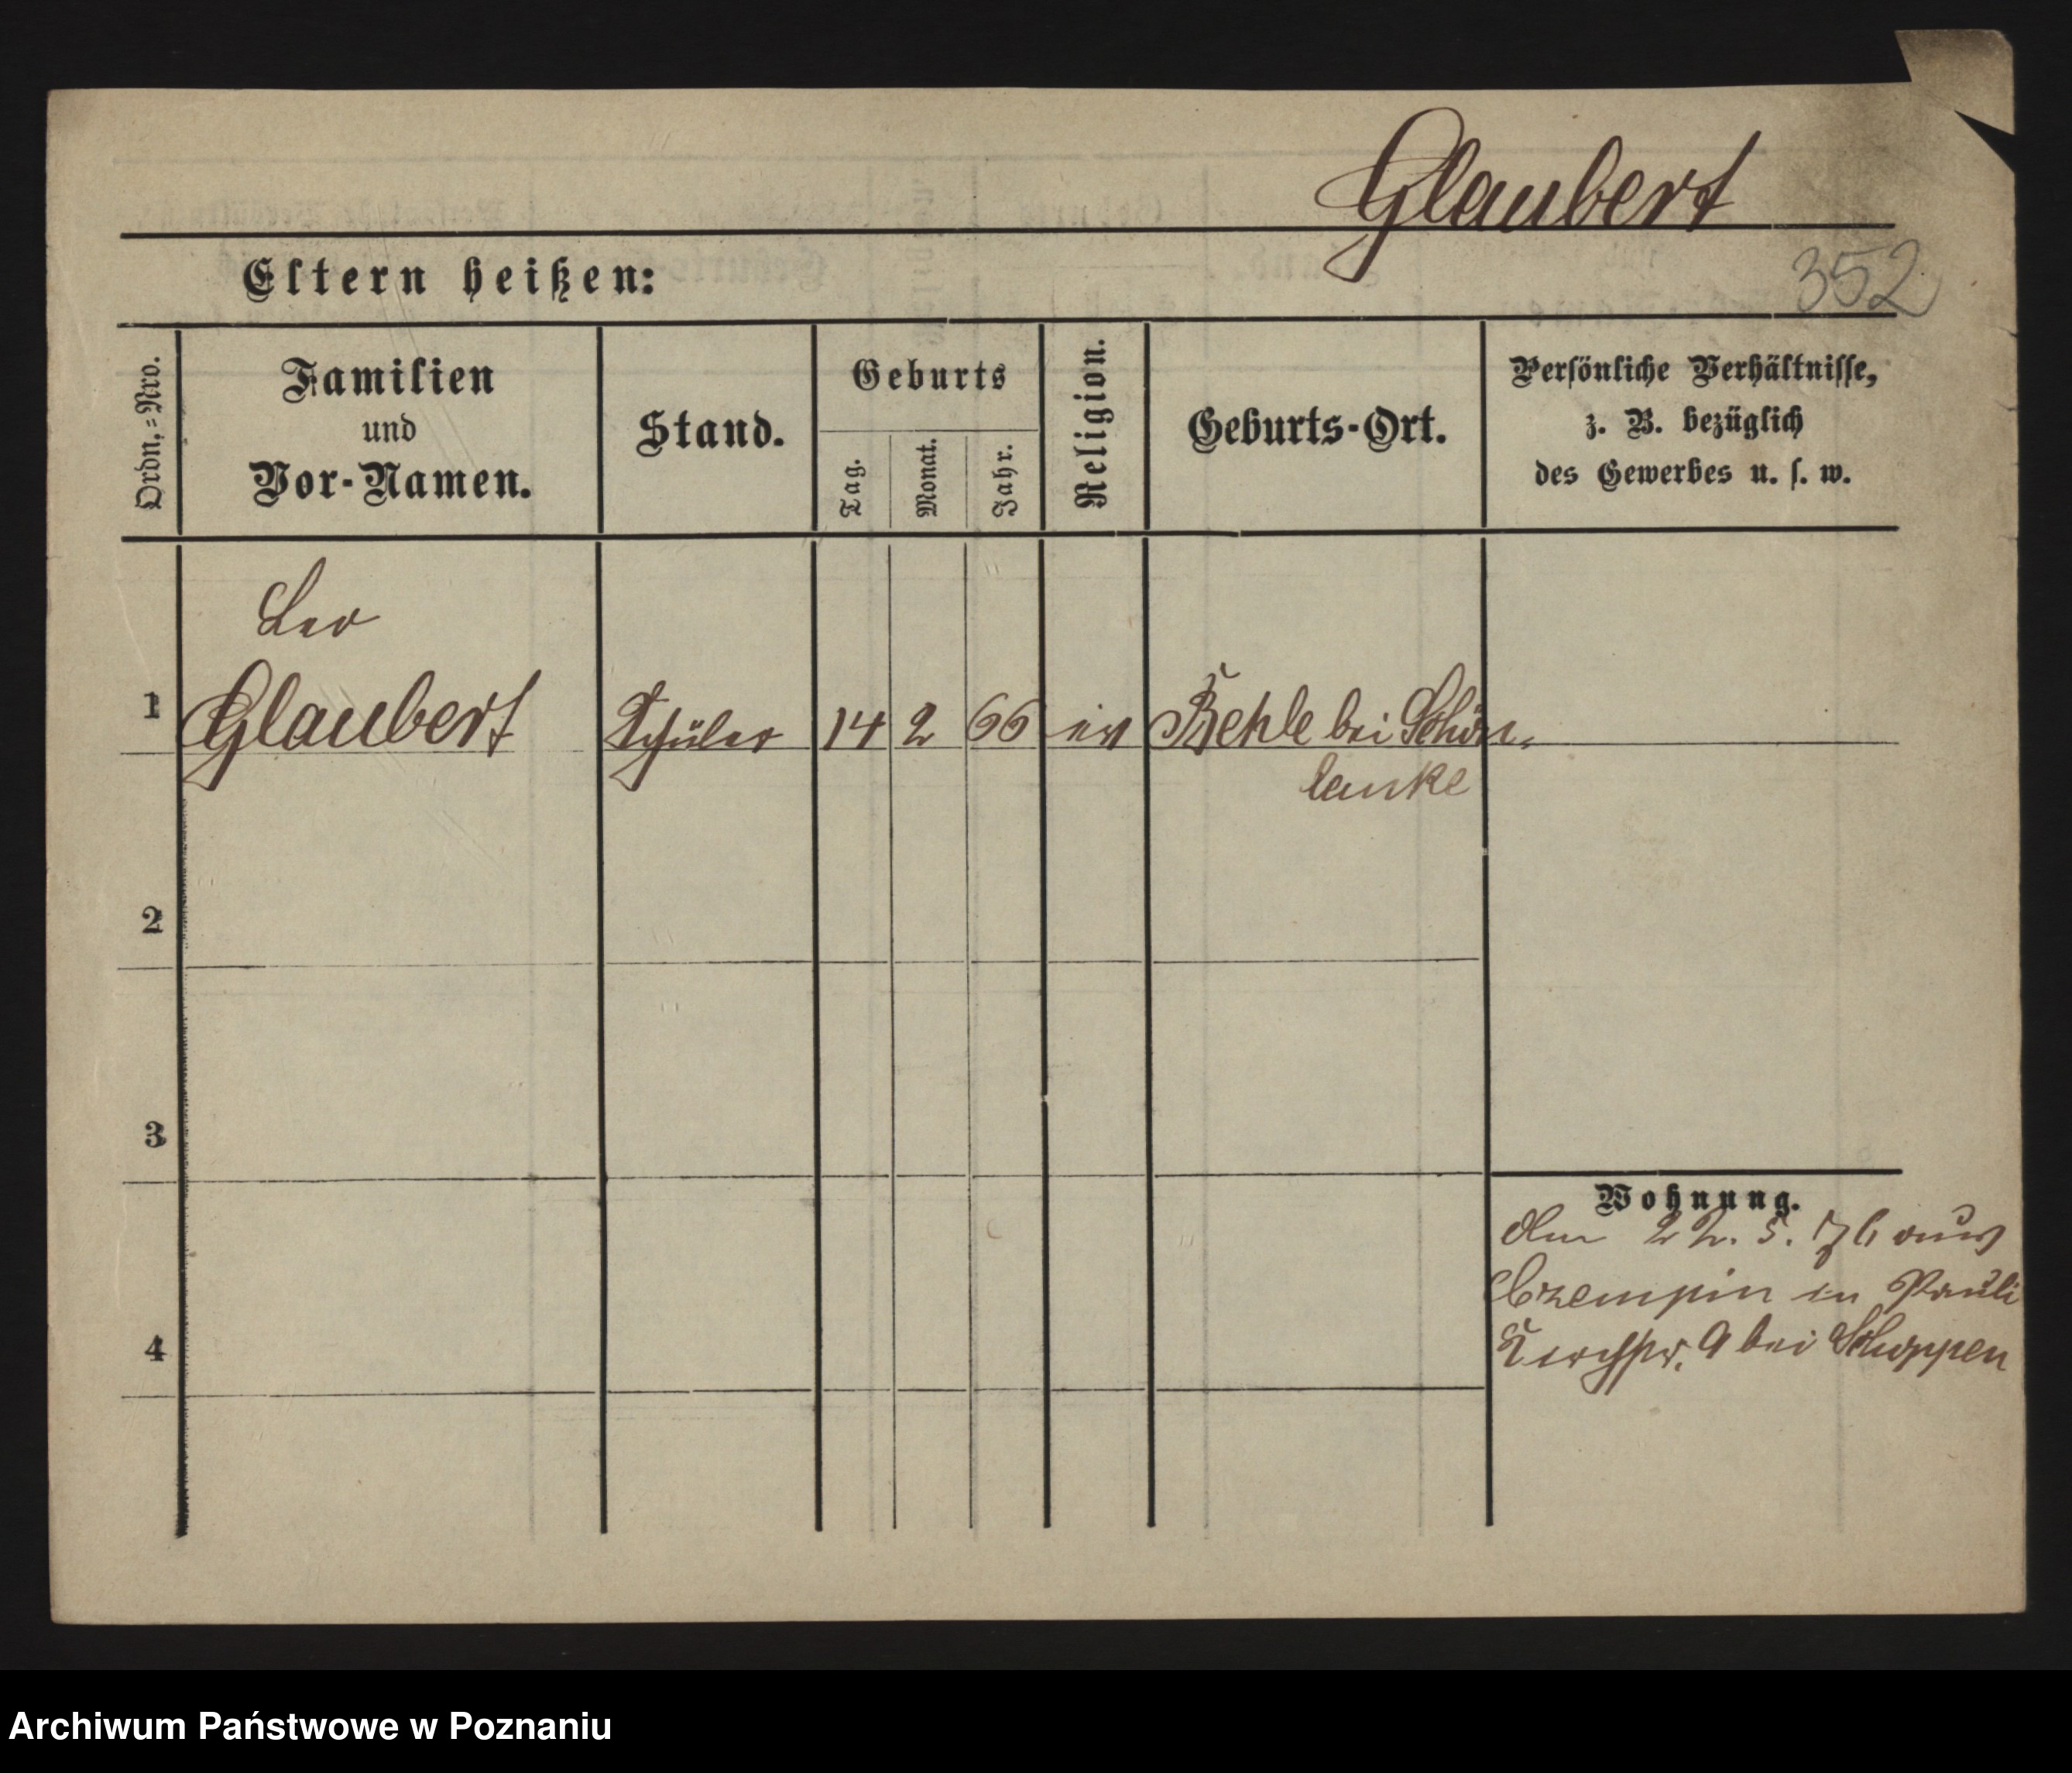 Glaubert
352
Eltern heißen:
Ordn.-Nro.
Familien
und
Vor-Namen.
Stand.
Geburts
Tag.
Monat.
Jahr.
Religion.
Geburts-Ort.
Persönliche Verhältnisse,
z. B. bezüglich
des Gewerbes u. s. w.
Leo
1 Glaubert Schüler 14 2 66 Behle bei Schön-
lanke
2
3
4
Wohnung.
Am 22. 5. 76 aus
Czempin in Pauli
Kirchstr. 9 bei Schuppen
Archiwum Państwowe w Poznaniu